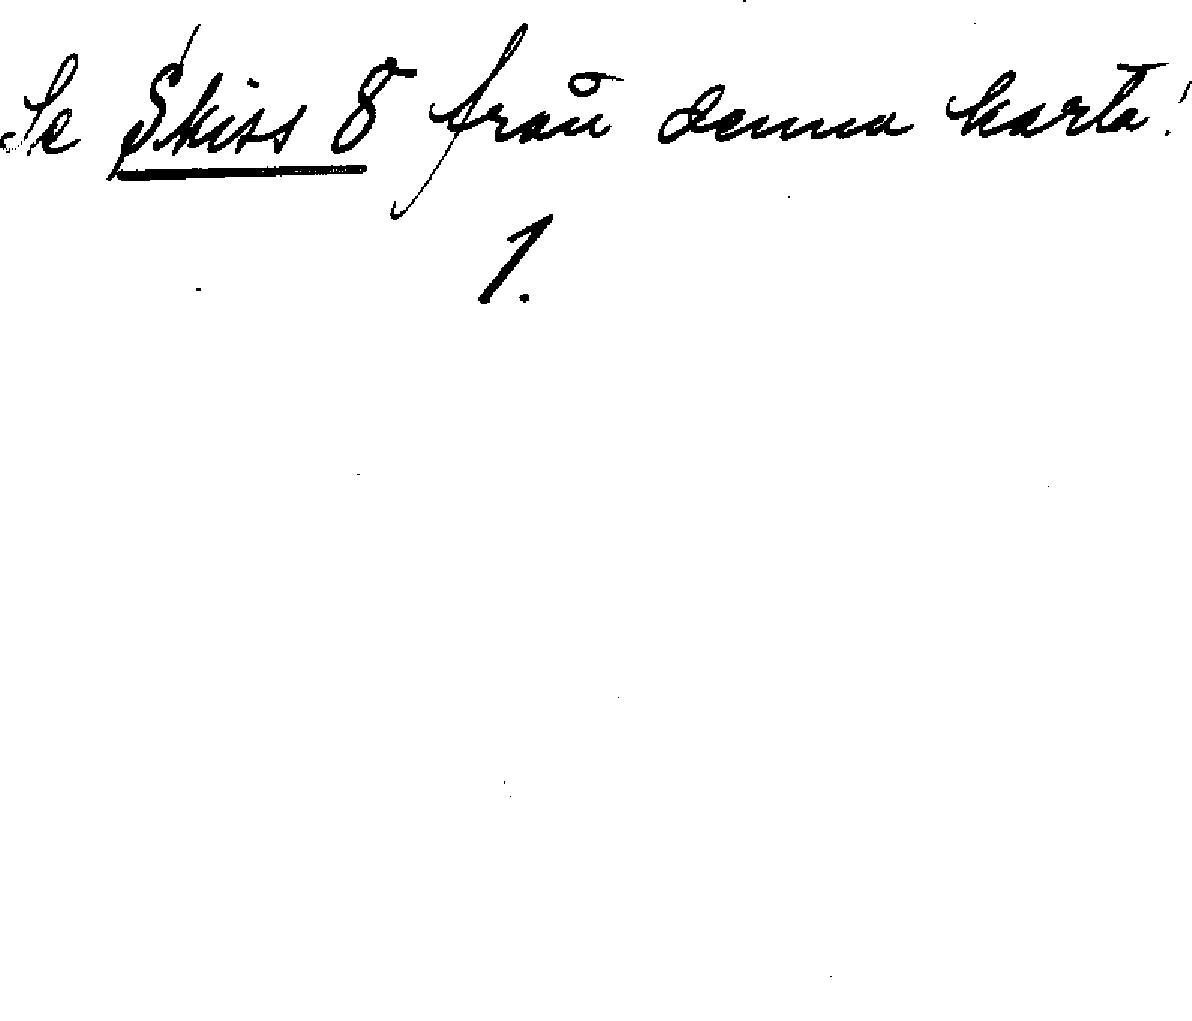 Se Skiss 8 från denna karta!
1.